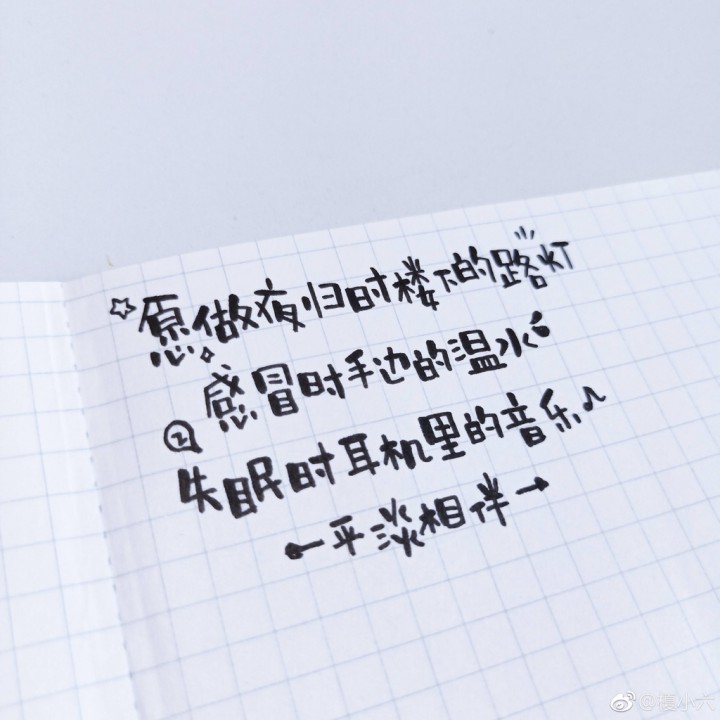 愿做夜归时楼下的路灯
感冒时手边的温水
失眠时耳机里的音乐
平淡相伴
@榎小六